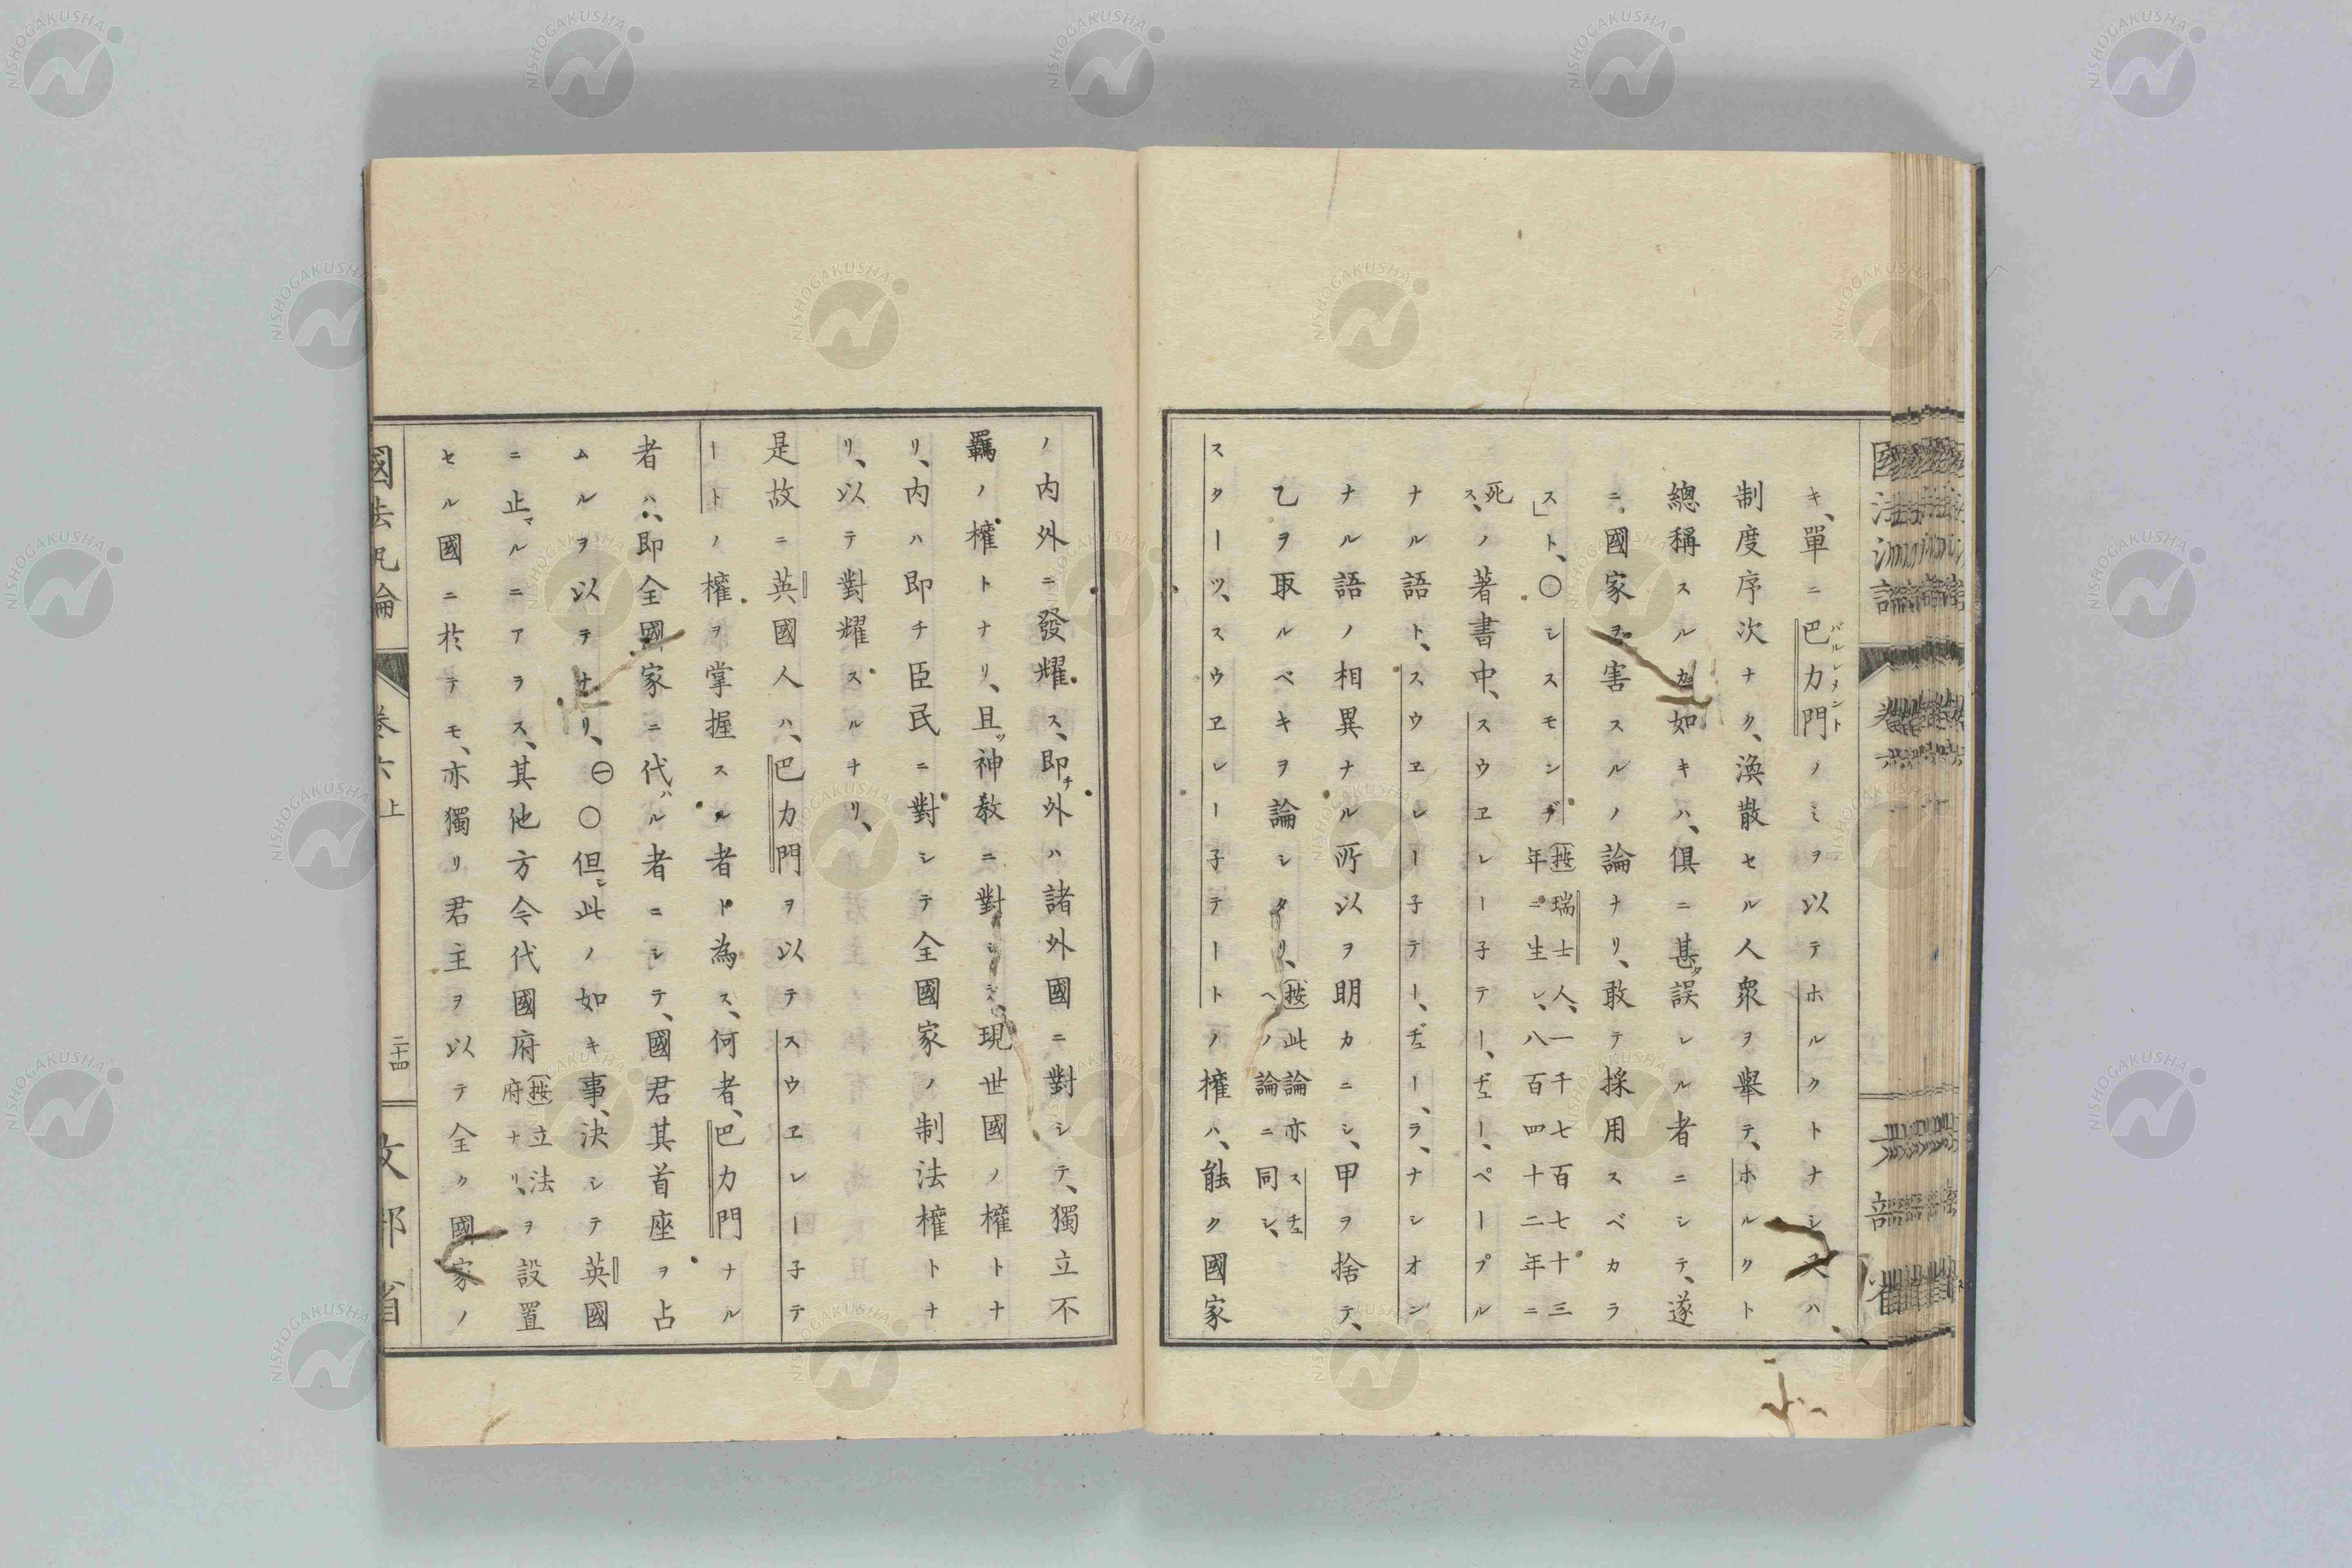 キ、單ニ巴力門ノミヲ以テホルクトナシ又ハ
バルレメント
制度序次ナク、渙散セル人衆ヲ舉テ、ホルクト
總稱スルカ如キハ、俱ニ甚ダ誤レル者ニシテ、遂
ニ國家ヲ害スルノ論ナリ、敢テ採用スベカラ
ス」ト、〇シスモンヂ
(按)瑞士人、一千七百七十三
年ニ生レ、八百四十二年ニ
死
ス、ノ著書中、スウエレー子テー、ヂュー、ペープル
ナル語ト、スウエレー子テー、ヂュー、ラ、ナシオン
ナル語ノ相異ナル所以ヲ明カニシ、甲ヲ捨テ、
乙ヲ取ルベキヲ論シタリ、
(按)此論亦スチェ
ヘノ論ニ同シ、
スターツ、スウエレー子テートノ權ハ、能ク國家
國法汎論
卷六
文部省
ノ内外ニ發耀ス、即チ外ハ諸外國ニ對シテ、獨立不
羈ノ權トナリ、且ツ神敎ニ對シテ、現世國ノ權トナ
リ、内ハ即チ臣民ニ對シテ全國家ノ制法權トナ
リ、以テ對耀スルナリ、
是故ニ英國人ハ、巴力門ヲ以テスウエレー子テ
ートノ權ヲ掌握スル者ト為ス、何者、巴力門ナル
者ハ、即全國家ニ代ハル者ニシテ、國君其首座ヲ占
ムルヲ以テナリ、㊀〇但シ此ノ如キ事、決シテ英國
ニ止マルニアラス、其他方今代國府
(按)立法
府ナリ、
ヲ設置
セル國ニ於テモ、亦獨リ君主ヲ以テ全ク國家ノ
國法汎論
卷六上
二十四
文部省
NISHOGAKUSHA